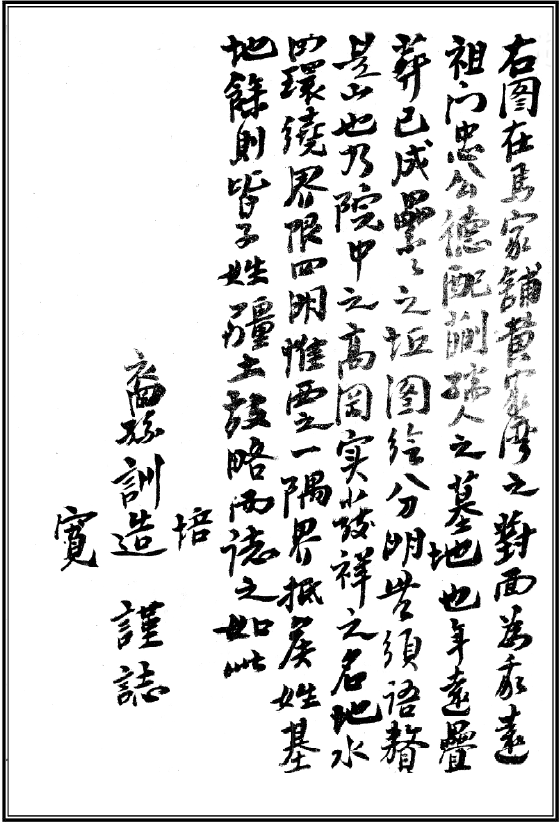 右图在馬家舖黄家灣之對面為我遠
祖門忠公德配蒯孺人之墓地也年遠疊
葬已成壘々之坵图绘分明無須语贅
是山也乃院中之高岡实發祥之名地水
四環繞界限四明惟西之一隅界抵矦姓基
地餘則皆子姓疆土故略而誌之如此
培
裔孫訓造 謹誌
寬